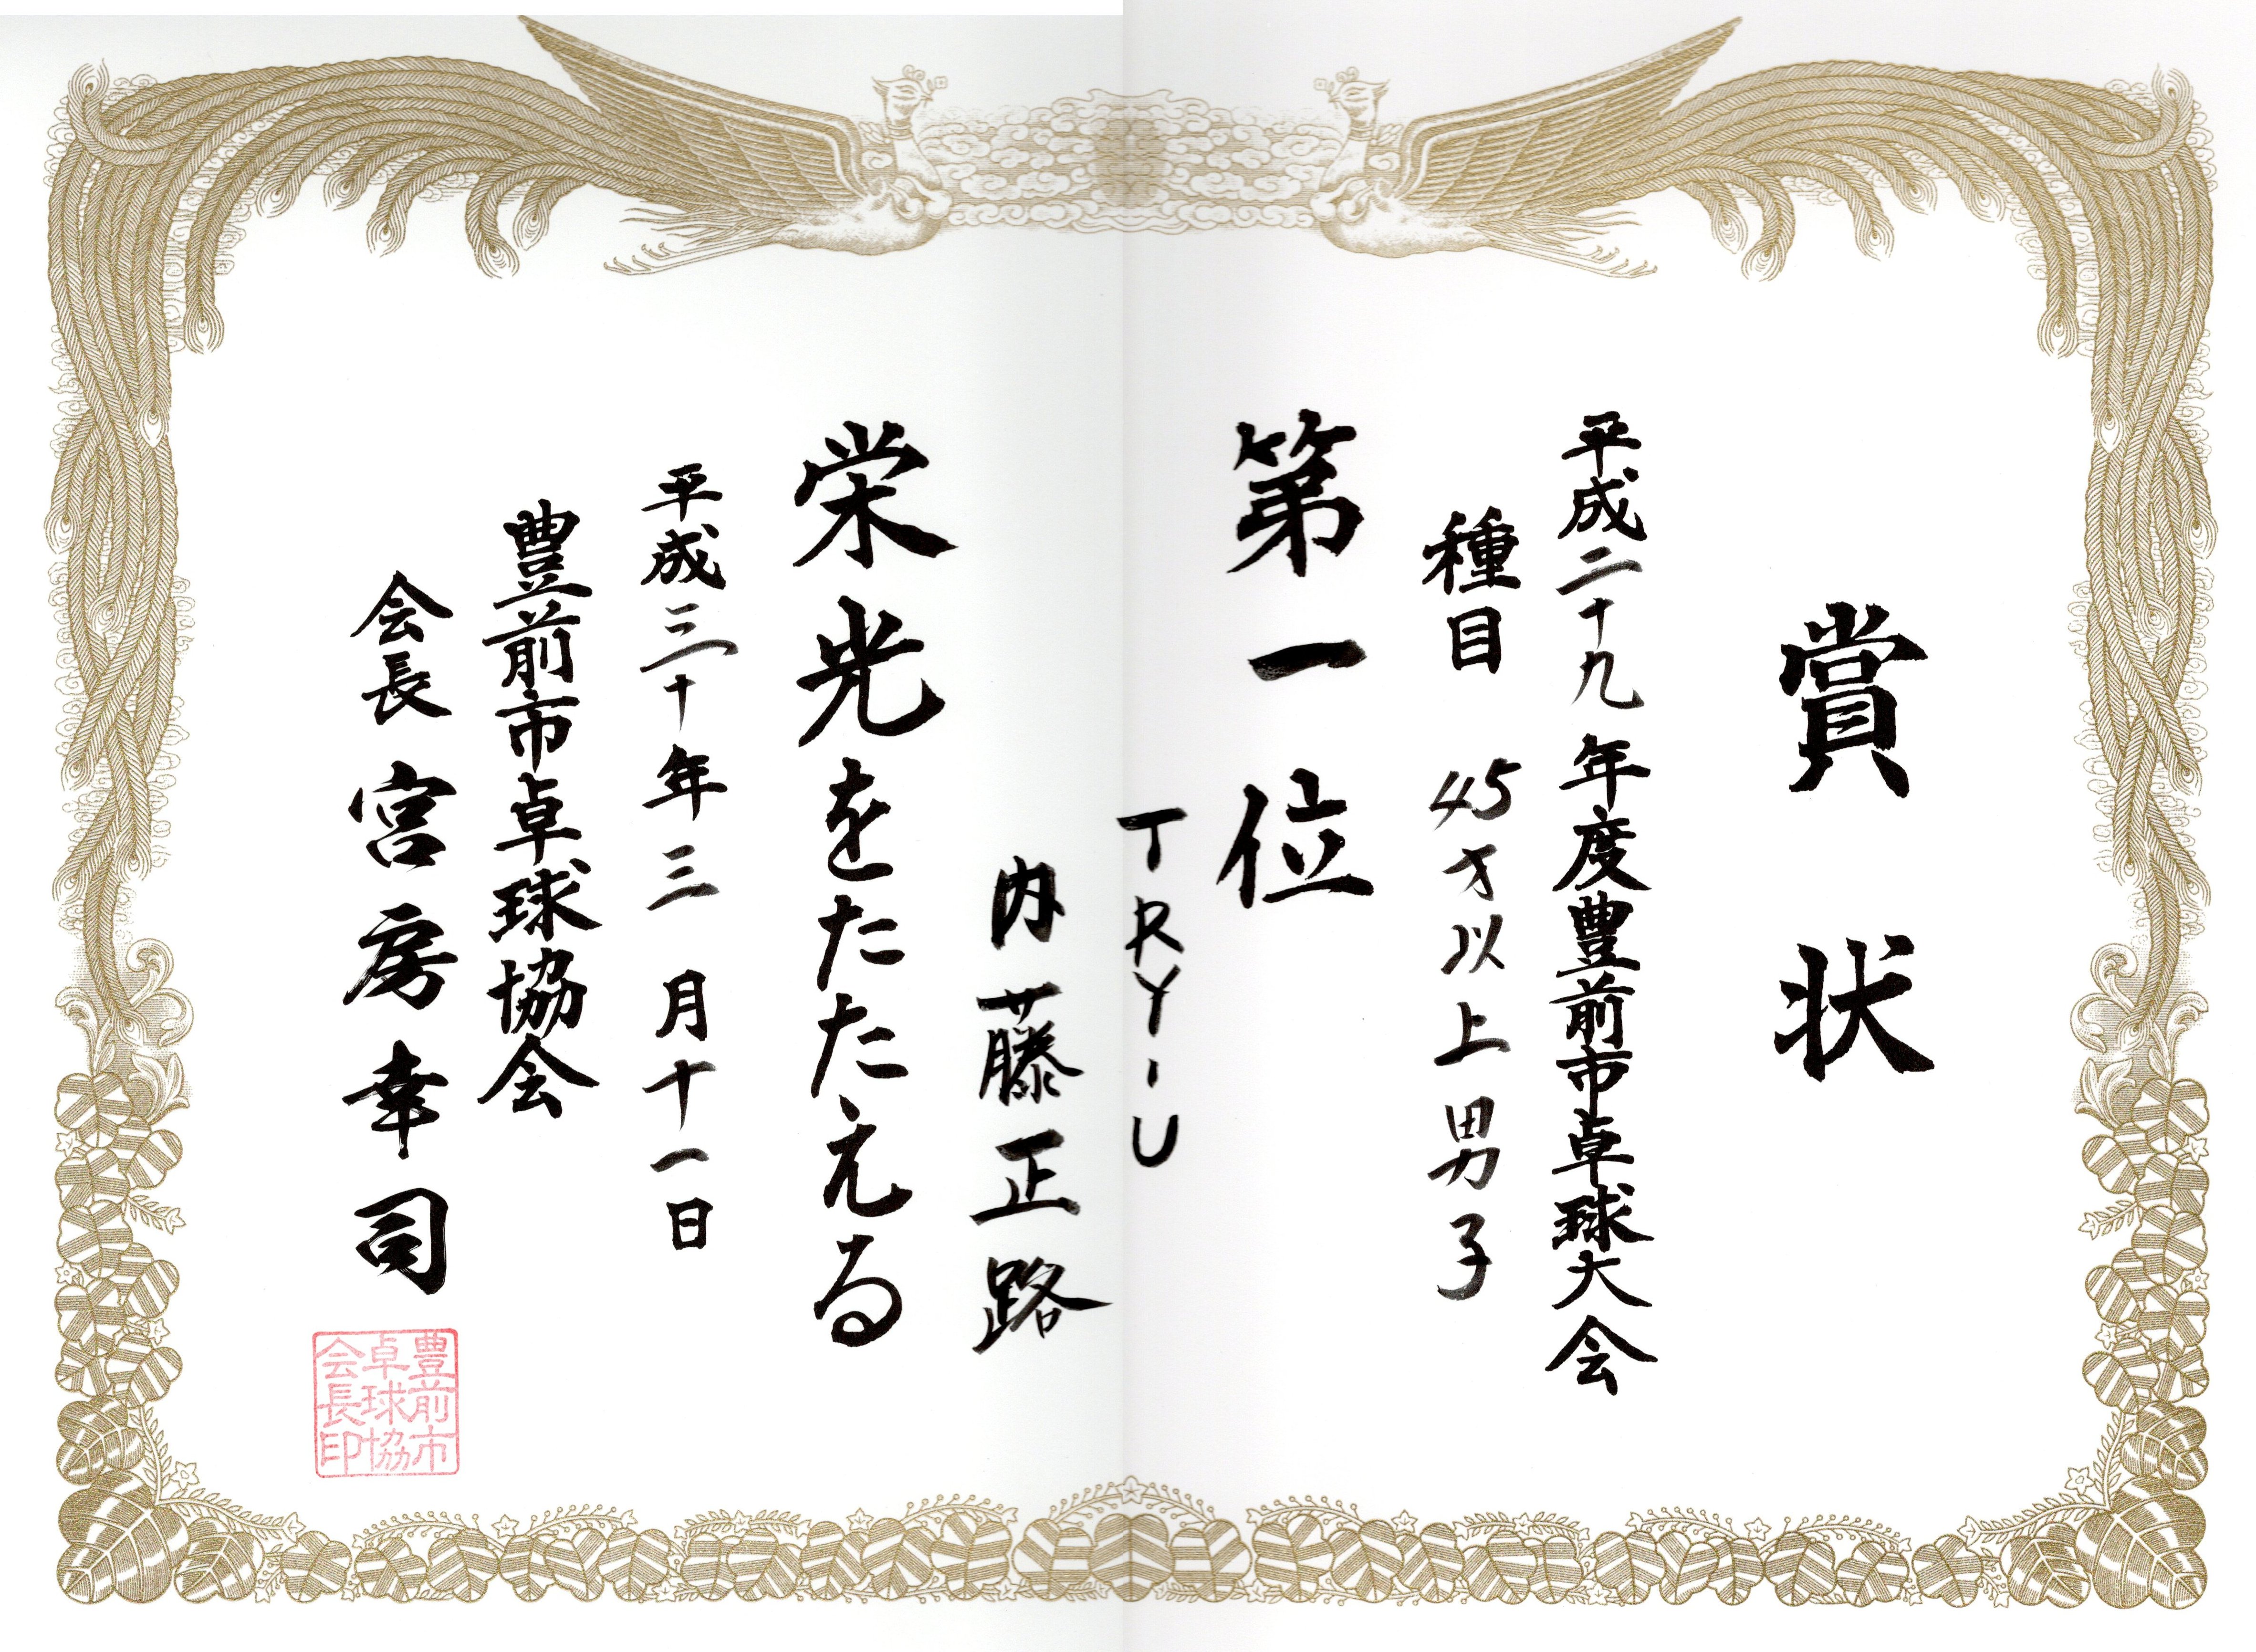 賞状
平成二十九年度豊前市卓球大会
種目 45才以上男子
第一位
TRY・U
内藤正路
栄光をたたえる
平成三十年三月十一日
豊前市卓球協会
会長 宮房幸司
豊前市
卓球協
会長印